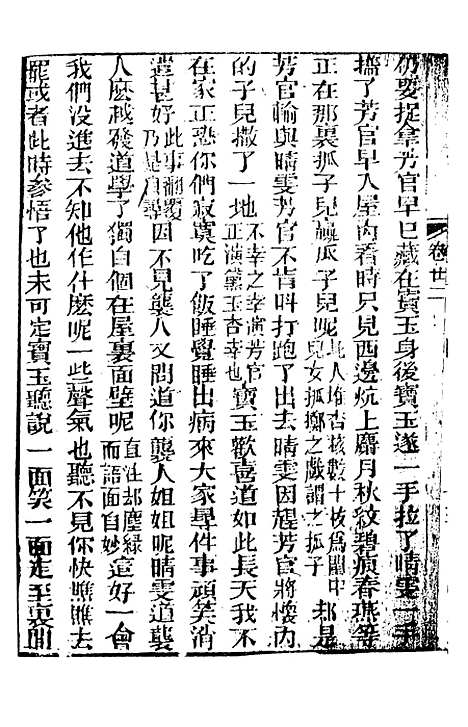 仍要捉拿芳官芳官早已藏在寶玉身後寶玉遂一手拉了晴雯一手
攜了芳官早入屋內看時只見西邊炕上麝月秋紋碧痕春燕等
正在那裏抓子兒贏瓜子兒呢此人堆杏核數十枚爲閨中兒女抓擲之戲謂之抓子却是
芳官輸與晴雯芳官不肯叫打跑了出去晴雯因趕芳官將懷內
的子兒撒了一地不幸之幸演芳官正演黛玉杏幸也寶玉歡喜道如此長天我不
在家正恐你們寂寞吃了飯睡覺睡出病來大家尋件事頑笑消
遣甚好此事翻覆乃是真尋因不見襲人又問道你襲人姐姐呢晴雯道襲
人麽越發道學了獨自個在屋裏面壁呢直注却塵緣而語面自妙這好一會
我們没進去不知他作什麽呢一些聲氣也聽不見你快瞧瞧去
罷或者此時參悟了也未可定寶玉聽說一面笑一面走至裏間
卷廿二